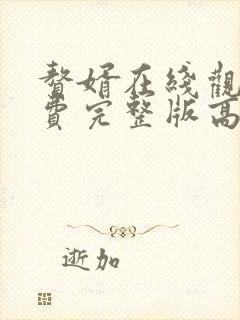 贅婿在綫觀
費完整版高
逝加